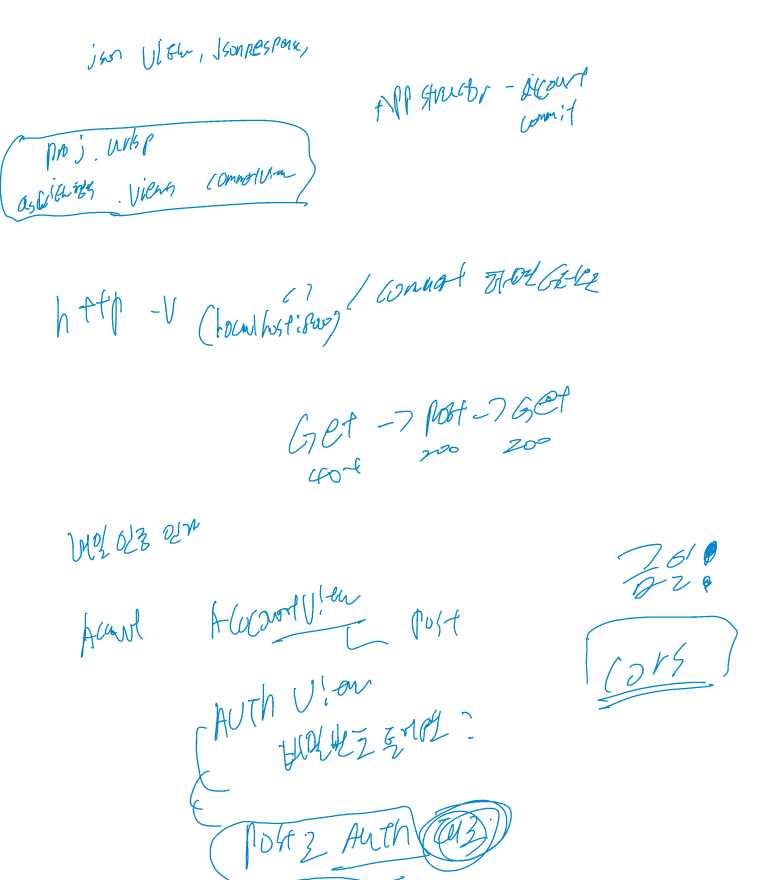 json View, Jsonresponse,
App structor - Account
commit
proj . urls
. views commentView
http -v (localhost:8000) / comment
Get -> Post -> Get
404 200 200
내일 인증 인가
Account AccountView Post
금요일!
cors
AUTH View
비밀번호 틀리면?
Post로 Auth